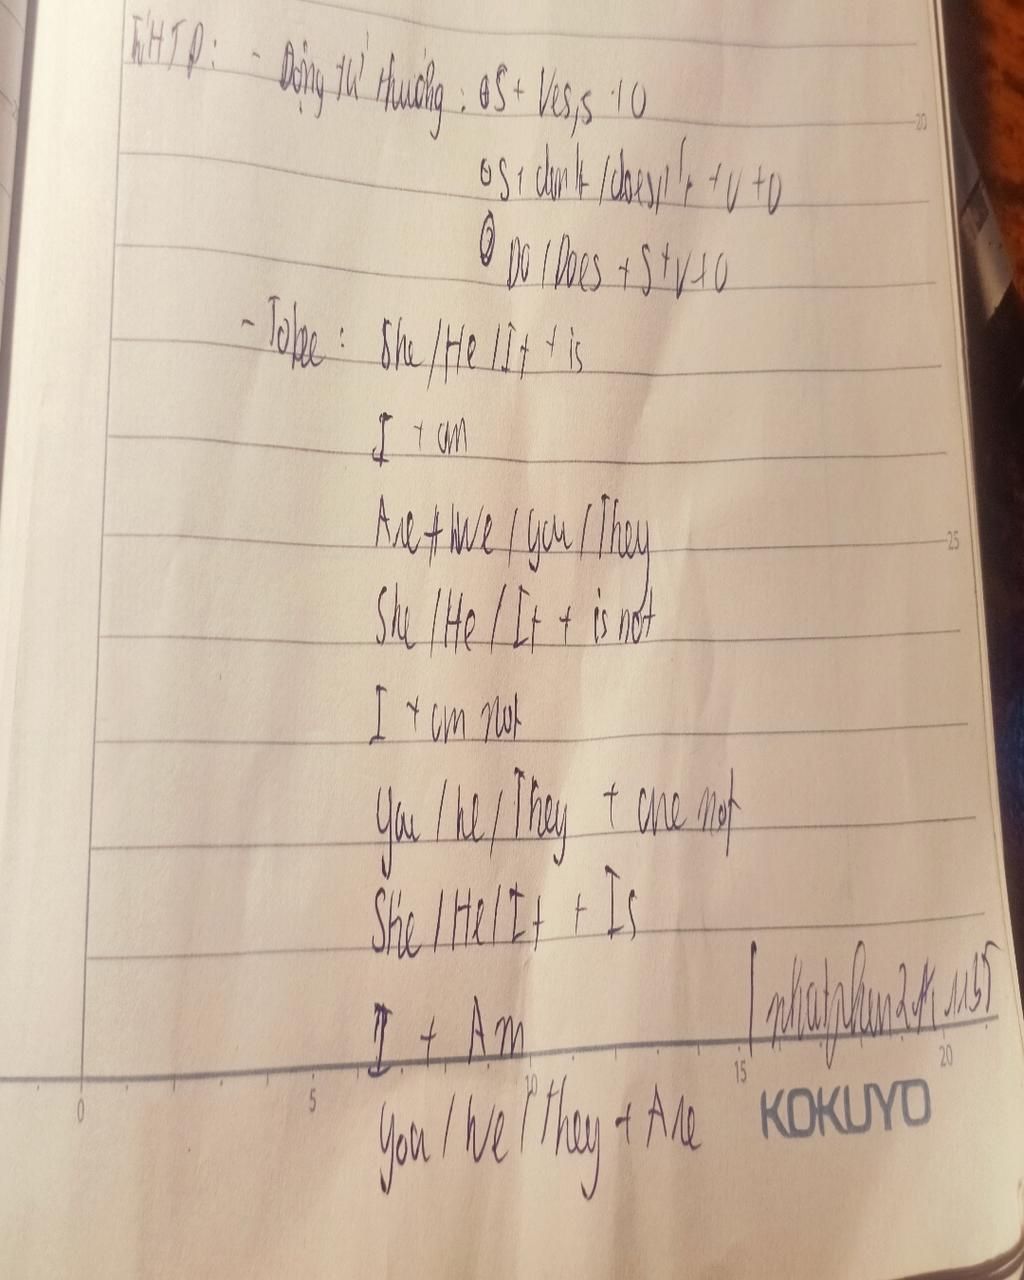 - Động từ thường : S + Ves,s + O
S + don't / doesn't + V + O
DO / Does + S + V + O
- Tobe : She / He / It + is
I + am
Are + We / you / They
She / He / It + is not
I + am not
you / he / They + are not
She / He / It + Is
I + Am
you / We / They + Are
20
25
0 5 10 15 20
KOKUYO